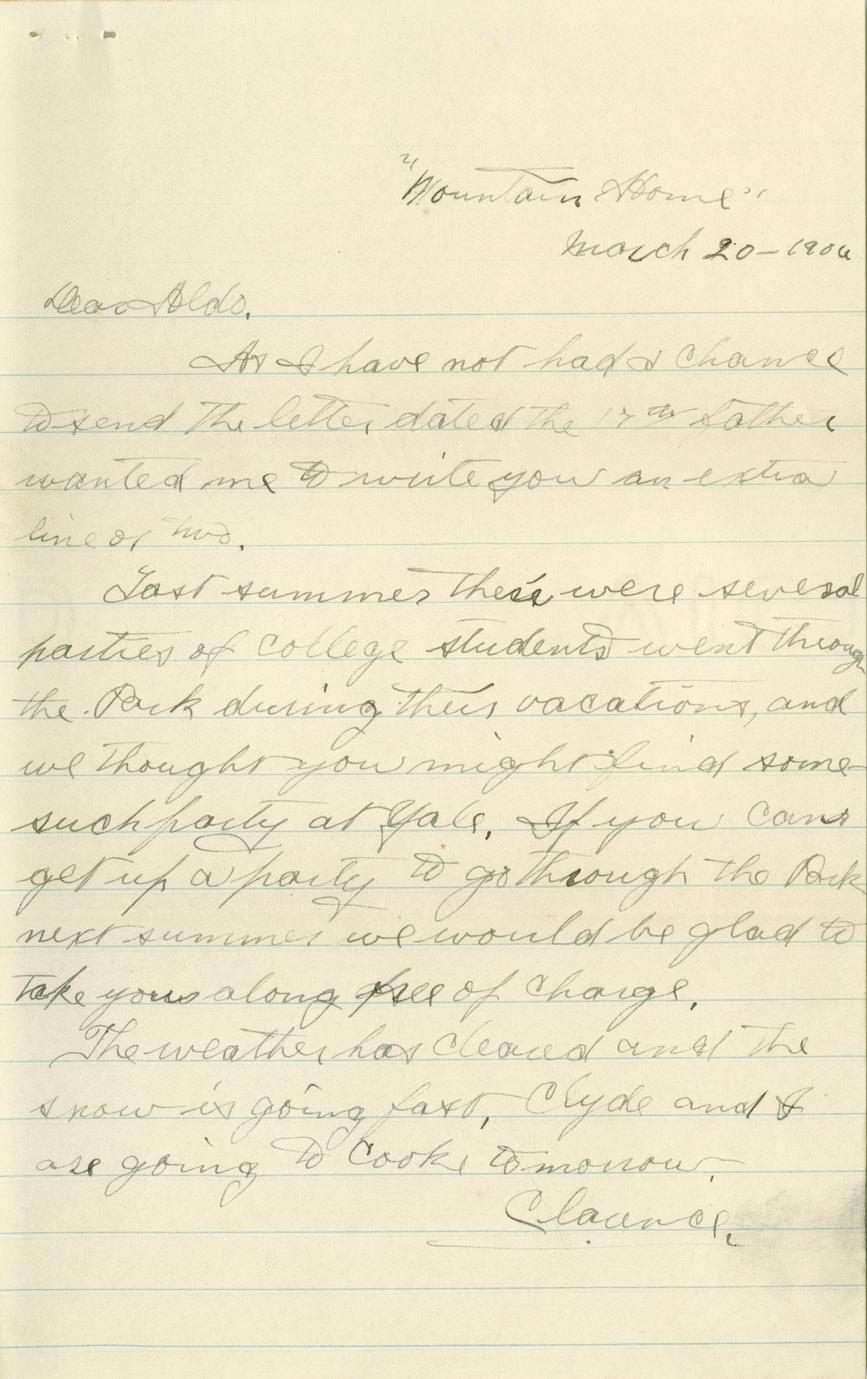 "Mountain Home"
March 20 - 1906
Dear Aldo.
As I have not had a chance
to send the letter dated the 17th father
wanted me to write you an extra
line or two.
Last summer there were several
parties of college students went through
the Park during their vacations, and
we thought you might find some
such party at Yale. If you can
get up a party to go through the Park
next summer we would be glad to
take you along free of charge.
The weather has cleared and the
snow is going fast, Clyde and I
are going to Cooke tomorrow.
Clarence.